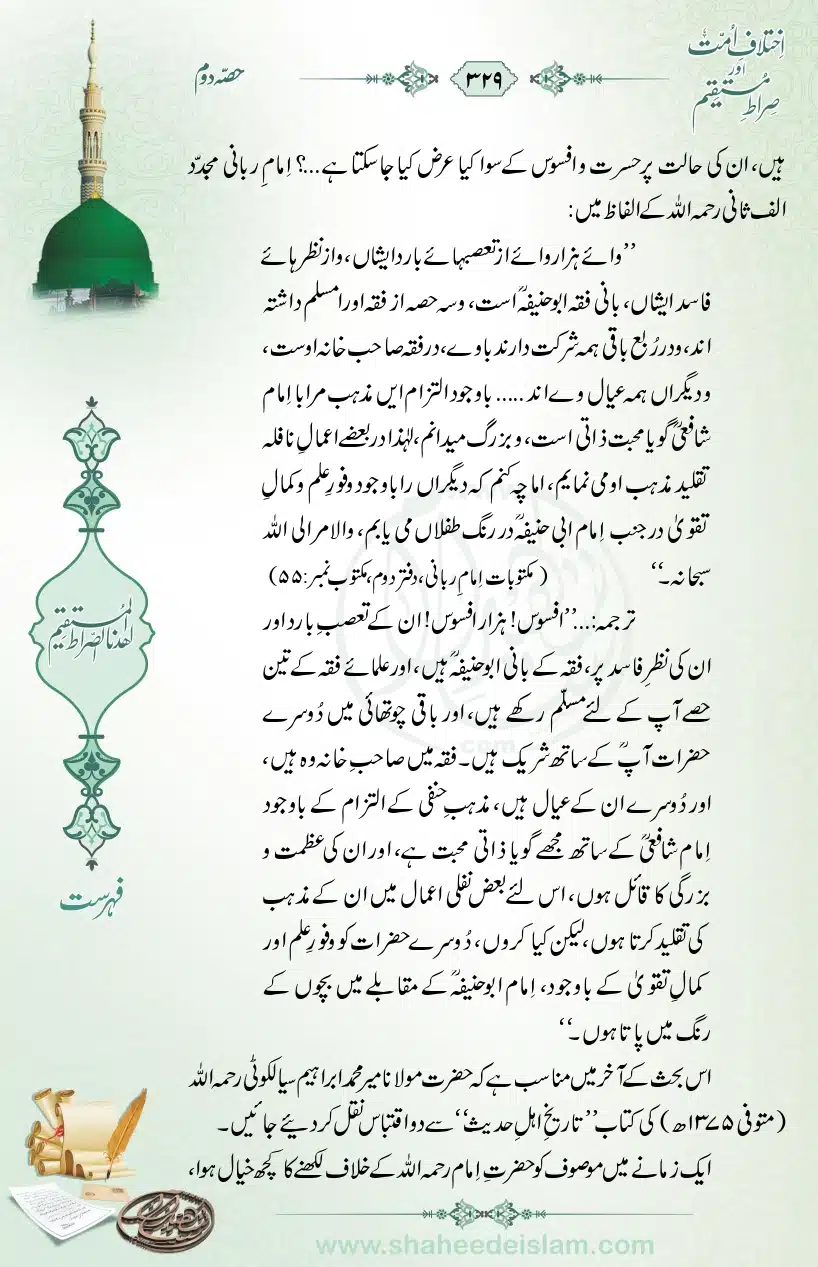 اِختلافِ اُمّت
اور
صِراطِ مُستقیم
۳۲۹
حصّہ دوم
ہیں، ان کی حالت پر حسرت و افسوس کے سوا کیا عرض کیا جاسکتا ہے...؟ اِمامِ ربانی مجدّد
الف ثانی رحمہ اللہ کے الفاظ میں:
’’وائے ہزار وائے از تعصبہائے بارد ایشاں، واز نظر ہائے
فاسد ایشاں، بانی فقہ ابوحنیفہؒ است، وسہ حصہ از فقہ اورا مسلم داشتہ
اند، ودر رُبع باقی ہمہ شرکت دارند باوے، درفقہ صاحب خانہ اوست،
ودیگراں ہمہ عیال وے اند ..... باوجود التزام ایں مذہب مرا با اِمام
شافعیؒ گویا محبت ذاتی است، وبزرگ میدانم، لہٰذا در بعضے اعمالِ نافلہ
تقلید مذہب اومی نمایم، اما چہ کنم کہ دیگراں را باوجود وفورِ علم وکمالِ
تقویٰ در جنب اِمام ابی حنیفہؒ در رنگ طفلاں می یابم، والامر الی اللہ
سبحانہ۔‘‘ (مکتوبات اِمامِ ربانی، دفتر دوم، مکتوب نمبر:۵۵)
ترجمہ:...’’افسوس! ہزار افسوس! ان کے تعصبِ بارد اور
ان کی نظرِ فاسد پر، فقہ کے بانی ابوحنیفہؒ ہیں، اور علمائے فقہ کے تین
حصے آپ کے لئے مسلّم رکھے ہیں، اور باقی چوتھائی میں دُوسرے
حضرات آپؒ کے ساتھ شریک ہیں۔ فقہ میں صاحبِ خانہ وہ ہیں،
اور دُوسرے ان کے عیال ہیں، مذہبِ حنفی کے التزام کے باوجود
اِمام شافعیؒ کے ساتھ مجھے گویا ذاتی محبت ہے، اور ان کی عظمت و
بزرگی کا قائل ہوں، اس لئے بعض نفلی اعمال میں ان کے مذہب
کی تقلید کرتا ہوں، لیکن کیا کروں، دُوسرے حضرات کو وفورِ علم اور
کمالِ تقویٰ کے باوجود، اِمام ابوحنیفہؒ کے مقابلے میں بچوں کے
رنگ میں پاتا ہوں۔‘‘
اس بحث کے آخر میں مناسب ہے کہ حضرت مولانا میر محمد ابراہیم سیالکوٹی رحمہ اللہ
(متوفی ۱۳۷۵ھ) کی کتاب ’’تاریخِ اہلِ حدیث‘‘ سے دو اقتباس نقل کردیئے جائیں۔
ایک زمانے میں موصوف کو حضرتِ اِمام رحمہ اللہ کے خلاف لکھنے کا کچھ خیال ہوا،
اهدنا الصّراط المستقیم
فہرست
www.shaheedeislam.com